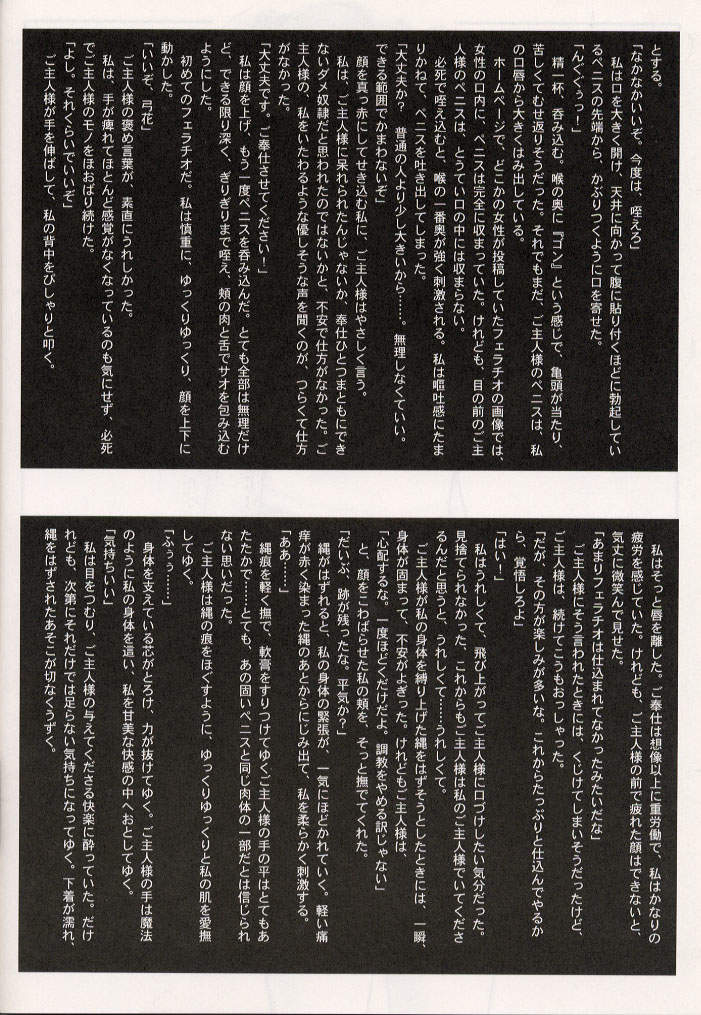 とする。
「なかなかいいぞ。今度は、咥えろ」
　私は口を大きく開け、天井に向かって腹に貼り付くほどに勃起してい
るペニスの先端から、かぶりつくように口を寄せた。
「んぐぐぅっ！」
　精一杯、呑み込む。喉の奥に『ゴン』という感じで、亀頭が当たり、
苦しくてむせ返りそうだった。それでもまだ、ご主人様のペニスは、私
の口唇から大きくはみ出している。
　ホームページで、どこかの女性が投稿していたフェラチオの画像では、
女性の口内に、ペニスは完全に収まっていた。けれども、目の前のご主
人様のペニスは、とうてい口の中には収まらない。
　必死で咥え込むと、喉の一番奥が強く刺激される。私は嘔吐感にたま
りかねて、ペニスを吐き出してしまった。
「大丈夫か？　普通の人より少し大きいから……。無理しなくていい。
できる範囲でかまわないぞ」
　顔を真っ赤にしてせき込む私に、ご主人様はやさしく言う。
　私は、ご主人様に呆れられたんじゃないか、奉仕ひとつまともにでき
ないダメ奴隷だと思われたのではないかと、不安で仕方がなかった。ご
主人様の、私をいたわるような優しそうな声を聞くのが、つらくて仕方
がなかった。
「大丈夫です。ご奉仕させてください！」
　私は顔を上げ、もう一度ペニスを呑み込んだ。とても全部は無理だけ
ど、できる限り深く、ぎりぎりまで咥え、頬の肉と舌でサオを包み込む
ようにした。
　初めてのフェラチオだ。私は慎重に、ゆっくりゆっくり、顔を上下に
動かした。
「いいぞ、弓花」
　ご主人様の褒め言葉が、素直にうれしかった。
　私は、手が痺れてほとんど感覚がなくなっているのも気にせず、必死
でご主人様のモノをほおばり続けた。
「よし。それくらいでいいぞ」
　ご主人様が手を伸ばして、私の背中をぴしゃりと叩く。
　私はそっと唇を離した。ご奉仕は想像以上に重労働で、私はかなりの
疲労を感じていた。けれども、ご主人様の前で疲れた顔はできないと、
気丈に微笑んで見せた。
「あまりフェラチオは仕込まれてなかったみたいだな」
　ご主人様にそう言われたときには、くじけてしまいそうだったけど、
ご主人様は、続けてこうもおっしゃった。
「だが、その方が楽しみが多いな。これからたっぷりと仕込んでやるか
ら、覚悟しろよ」
「はい！」
　私はうれしくて、飛び上がってご主人様に口づけしたい気分だった。
見捨てられなかった、これからもご主人様は私のご主人様でいてくださ
るんだと思うと、うれしくて……うれしくて。
　ご主人様が私の身体を縛り上げた縄をはずそうとしたときには、一瞬、
身体が固まって、不安がよぎった。けれどもご主人様は、
「心配するな。一度ほどくだけだよ。調教をやめる訳じゃない」
　と、顔をこわばらせた私の頬を、そっと撫でてくれた。
「だいぶ、跡が残ったな。平気か？」
　縄がはずれると、私の身体の緊張が、一気にほどかれていく。軽い痛
痒が赤く染まった縄のあとからにじみ出て、私を柔らかく刺激する。
「ああ……」
　縄痕を軽く撫で、軟膏をすりつけてゆくご主人様の手の平はとてもあ
たたかで……とても、あの固いペニスと同じ肉体の一部だとは信じられ
ない思いだった。
　ご主人様は縄の痕をほぐすように、ゆっくりゆっくりと私の肌を愛撫
してゆく。
「ふぅぅ……」
　身体を支えている芯がとろけ、力が抜けてゆく。ご主人様の手は魔法
のように私の身体を這い、私を甘美な快感の中へおとしてゆく。
「気持ちいい」
　私は目をつむり、ご主人様の与えてくださる快楽に酔っていた。だけ
れども、次第にそれだけでは足らない気持ちになってゆく。下着が濡れ、
縄をはずされたあそこが切なくうずく。